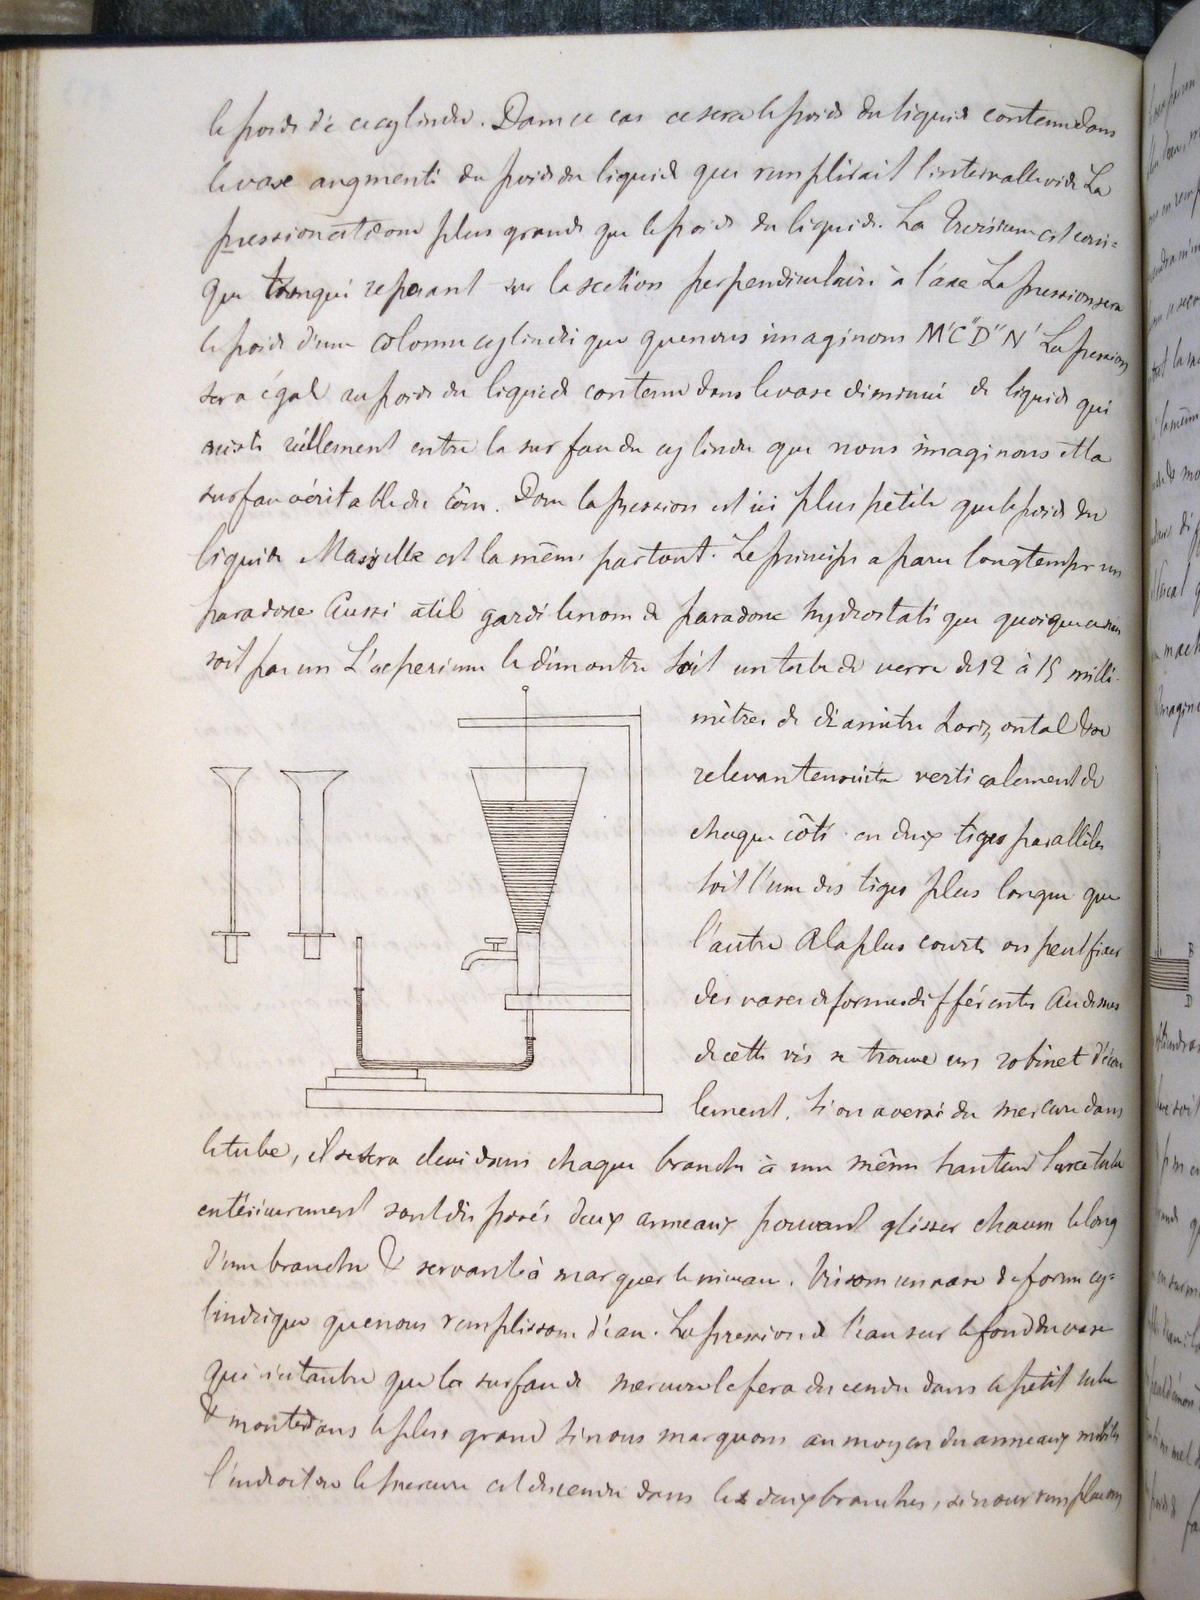 le poids de ce cylindre. Dans ce cas ce sera le poids du liquide contenu dans
le vase augmenté du poids du liquide qui remplirait l'intervalle vide La
pression est donc plus grande que le poids du liquide. La troisieme est coni=
que tronqué reposant sur la section perpendiculaire à l'axe La pression sera
le poids d'une colonne cylindrique que nous imaginons M'C"D"N' La pression
sera égale au poids du liquide contenu dans le vase diminué de liquide qui
existe réellement entre la surface du cylindre que nous imaginons et la
surface véritable du cône. Donc la pression est ici plus petite que le poids du
liquide Mais elle est la même partout. Le principe a paru longtemps un
paradoxe Aussi a til gardé le nom de paradoxe hydrostatique quoique ce n'en
soit pas un L'experience le démontre Soit un tube de verre de 12 à 15 milli-
mètres de diamètre horizontal se
relevant ensuite verticalement de
chaque côté en deux tiges parallèles
soit l'une des tiges plus longue que
l'autre A la plus courte on peut fixer
des vases de formes différentes Au dessus
de cette vis se trouve un robinet d'écou
lement. Si on a versé du mercure dans
le tube, il se sera élevé dans chaque branche à une même hauteur Sur ce tube
extérieurement sont disposés deux anneaux pouvant glisser chacun le long
d'une branche & servant à marquer le niveau. Vissons un vase de forme cy=
lindrique que nous remplissons d'eau. La pression de l'eau sur le fond du vase
qui n'est autre que la surface de mercure le fera descendre dans le petit tube
& monter dans le plus grand Si nous marquons au moyen des anneaux mobiles
l'endroit où le mercure est descendu dans les deux branches, si nous remplaçons
B
D